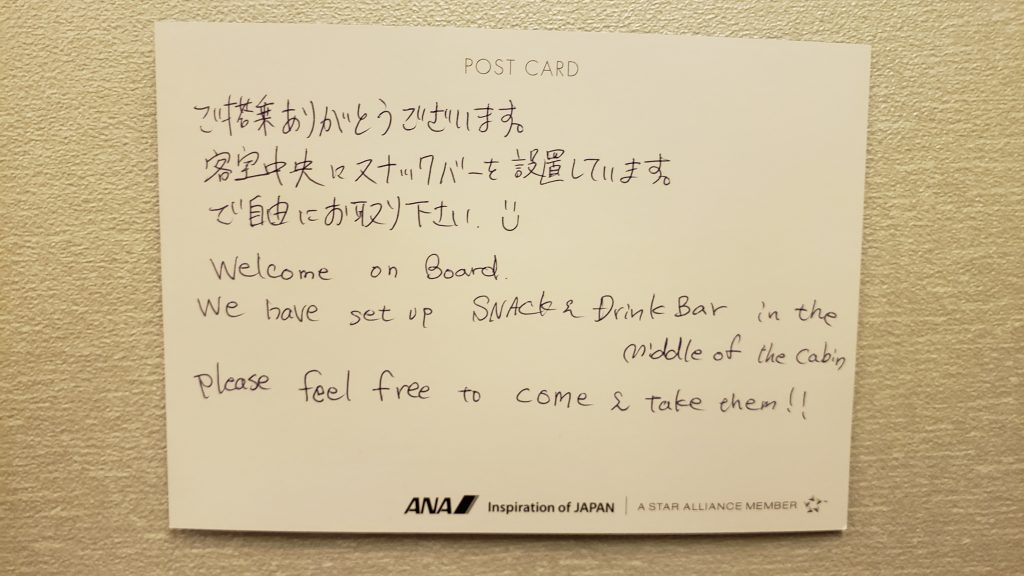 POST CARD
ご搭乗ありがとうございます。
客室中央にスナックバーを設置しています。
ご自由にお取り下さい.
Welcome on Board.
We have set up SNAck & Drink Bar in the
middle of the cabin
please feel free to come & take them!!
ANA Inspiration of JAPAN | A STAR ALLIANCE MEMBER